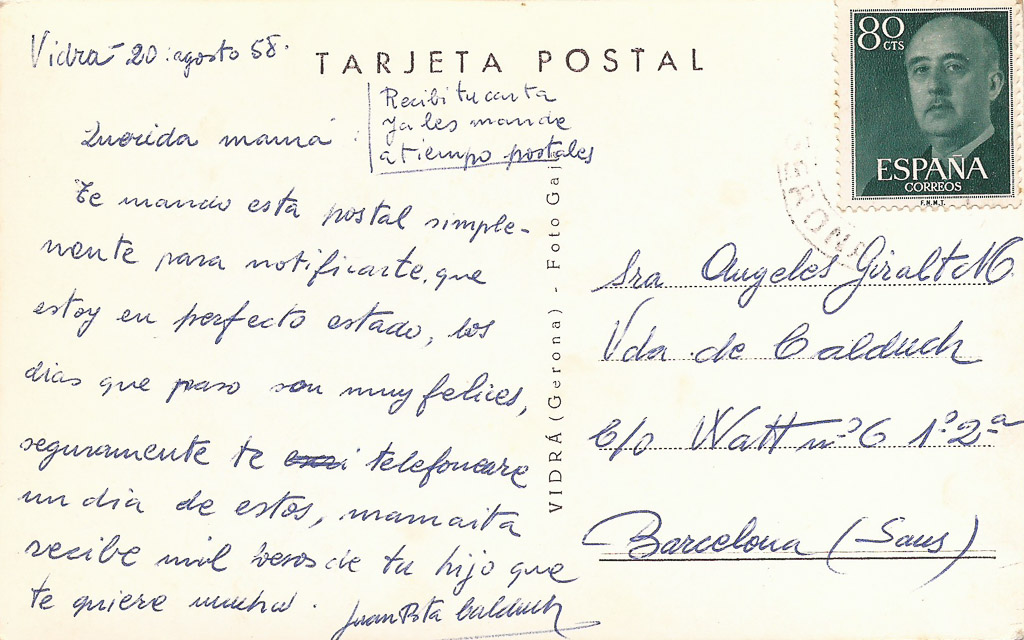 Vidrá 20 agosto 58.
TARJETA POSTAL
80 CTS
ESPAÑA
CORREOS
F.N.M.T.
Recibi tu carta
ya les mande
a tiempo postales
Querida mamá:
Te mando esta postal simple-
mente para notificarte, que
estoy en perfecto estado, los
dias que paso son muy felices,
seguramente te telefoneare
un dia de estos, mamaita
recibe mil besos de tu hijo que
te quiere mucho.
Juan Bta Calduch
VIDRÁ (Gerona) - Foto
Sra Angeles Giralt M.
Vda de Calduch
C/o Watt nº 6 1º 2ª
Barcelona (Sans)